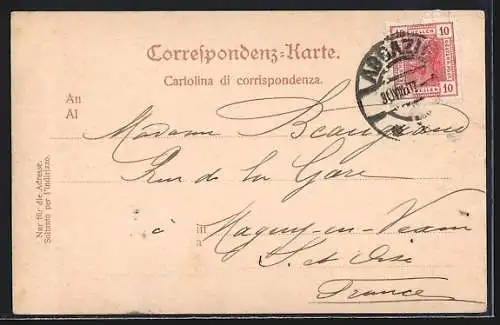 Correspondenz-Karte.
Cartolina di corrispondenza.
An
Al
Madame Beaugrand
Rue de la Gare
à Magny-en-Vexin
S. et Oise
France
in
a
Nur für die Adresse.
Soltanto per l'indirizzo.
ABBAZIA
10 10
HELLER